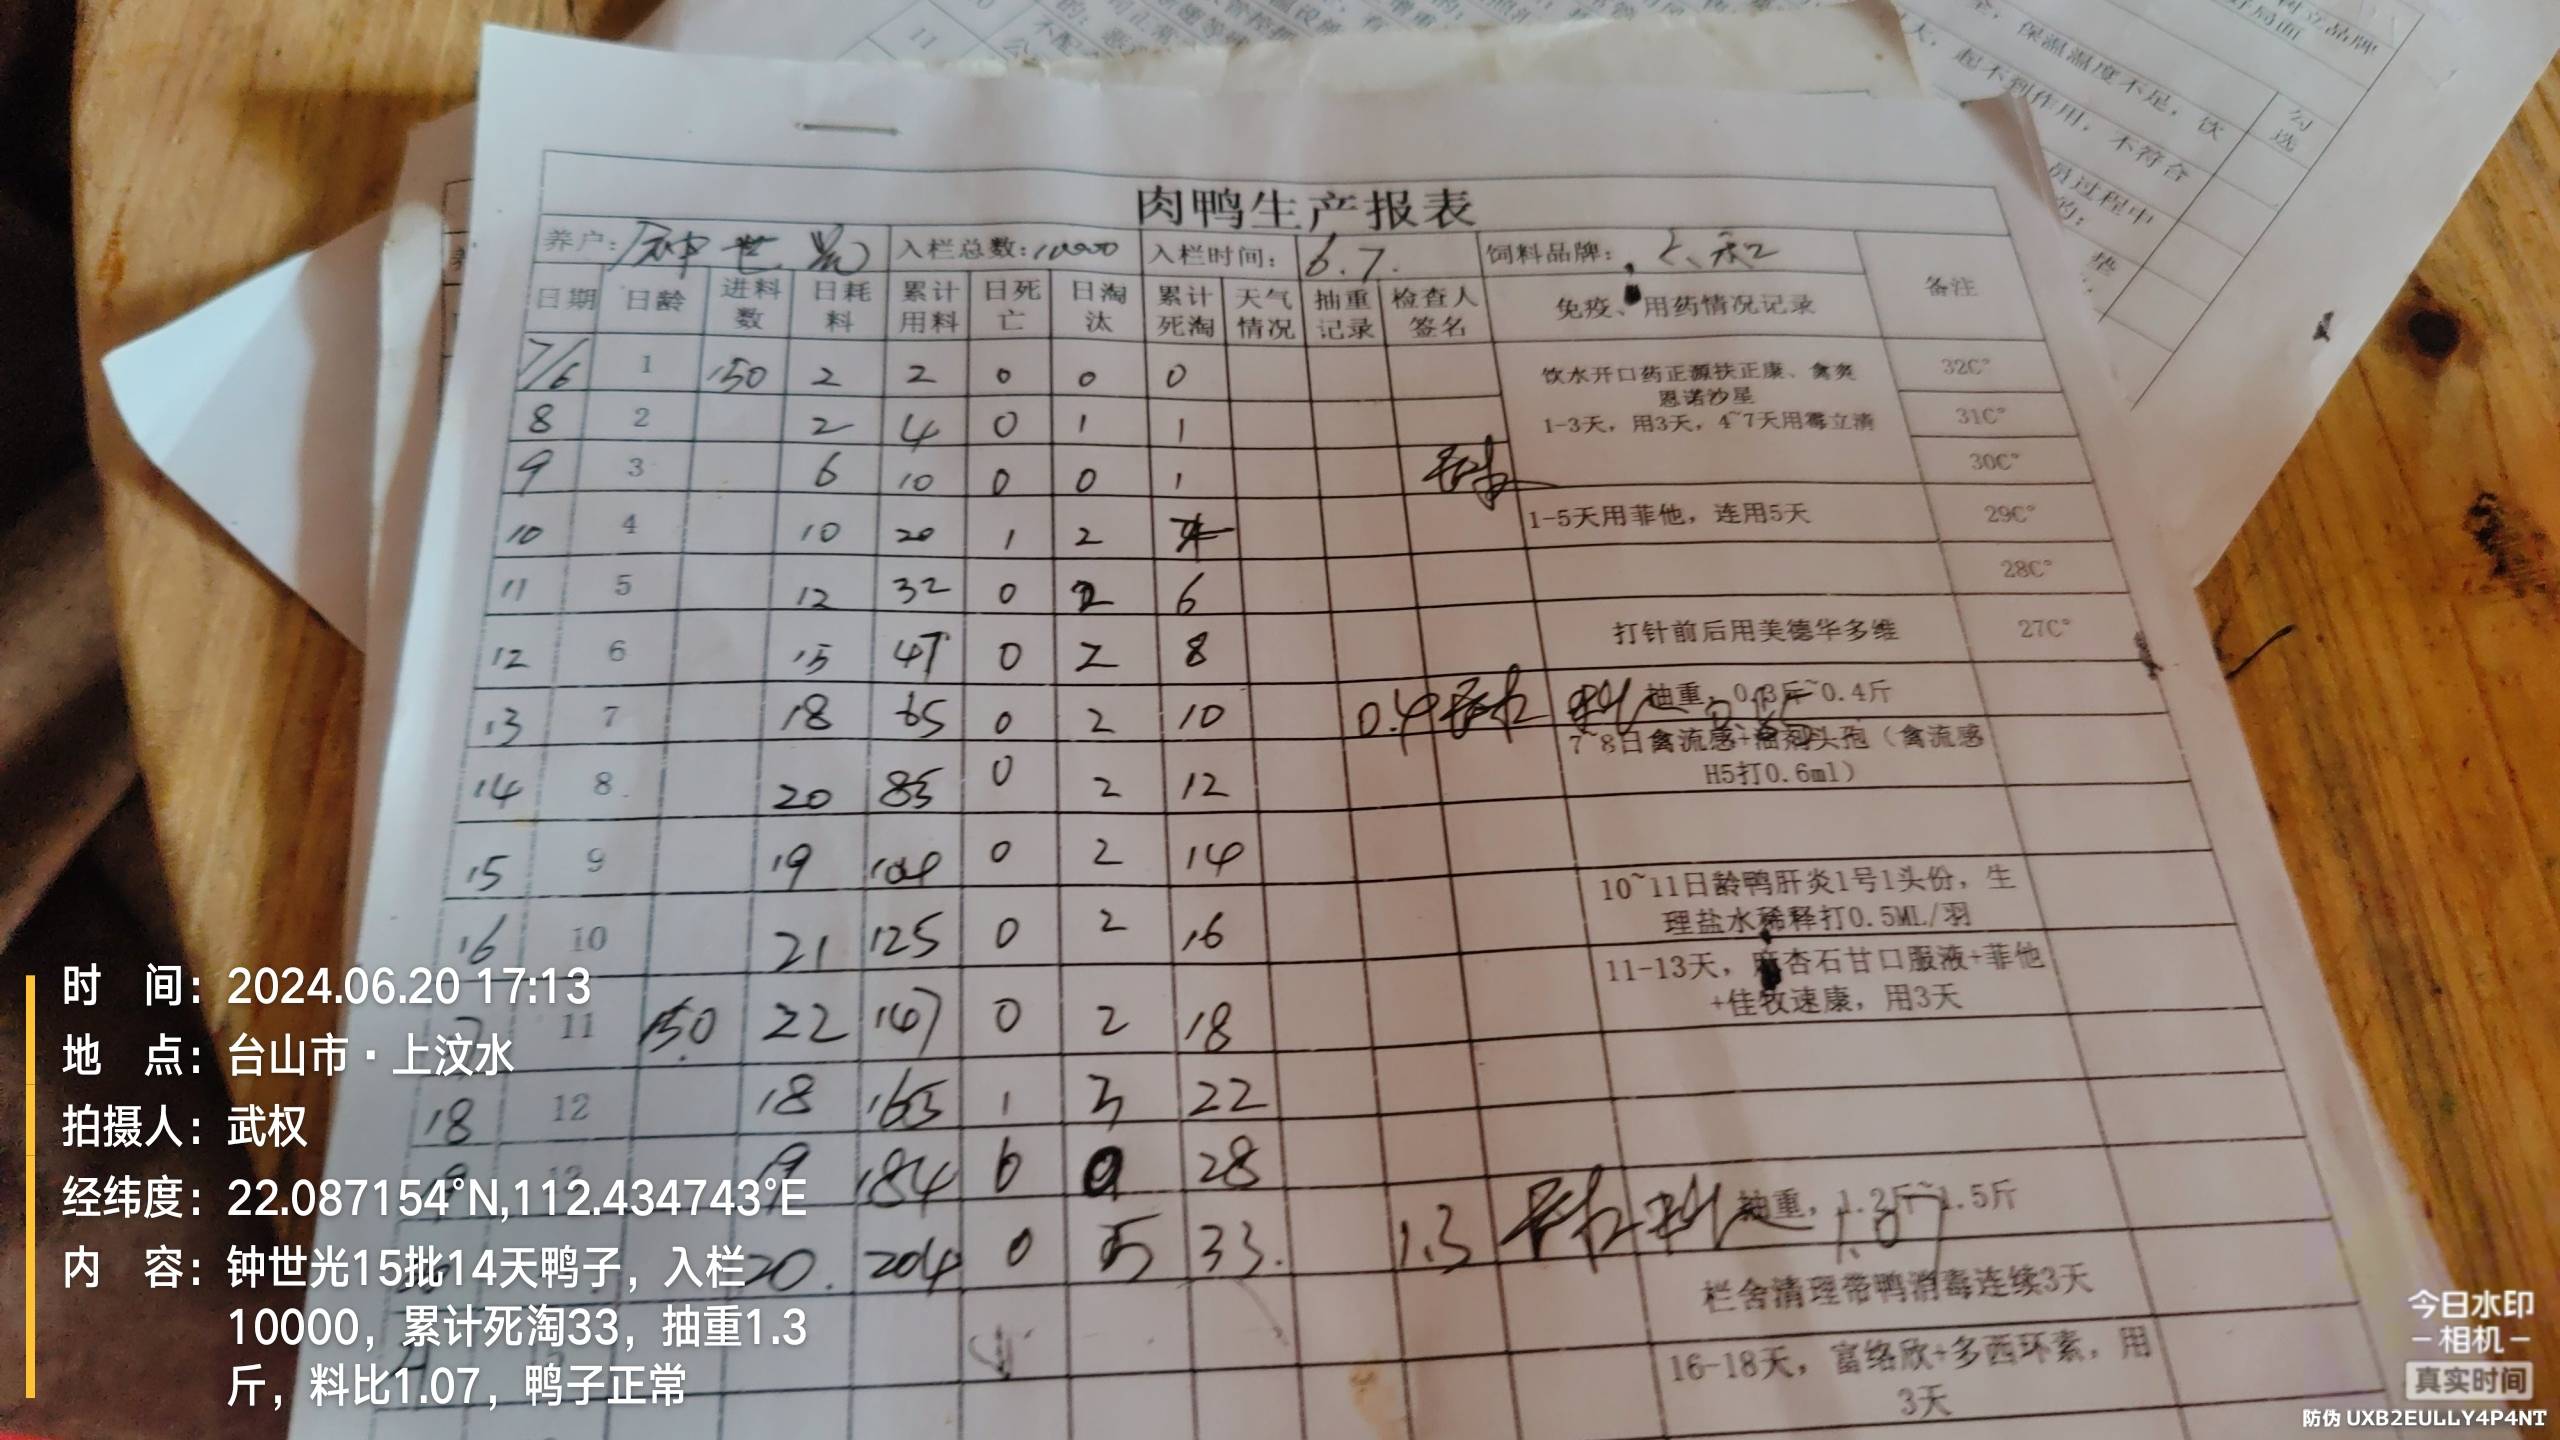 肉鸭生产报表
养户：钟世光 入栏总数：10000 入栏时间：6.7. 饲料品牌： 备注
日期 日龄 进料数 日耗料 累计用料 日死亡 日淘汰 累计死淘 天气情况 抽重记录 检查人签名 免疫、用药情况记录
7/6 1 150 2 2 0 0 0 饮水开口药正源扶正康、禽炎 32C°
恩诺沙星
8 2 2 4 0 1 1 1-3天，用3天，4~7天用霉立清 31C°
9 3 6 10 0 0 1 30C°
10 4 10 20 1 2 1-5天用菲他，连用5天 29C°
11 5 12 32 0 2 6 28C°
12 6 15 47 0 2 8 打针前后用美德华多维 27C°
13 7 18 65 0 2 10 0.4 抽重，0.3斤~0.4斤
14 8 20 85 0 2 12 7~8日禽流感+油剂头孢（禽流感
H5打0.6ml）
15 9 19 104 0 2 14
16 10 21 125 0 2 16 10~11日龄鸭肝炎1号1头份，生
理盐水稀释打0.5ML/羽
11 150 22 147 0 2 18 11-13天，麻杏石甘口服液+菲他
+佳牧速康，用3天
18 12 18 165 1 3 22
19 13 19 184 6 0 28
20. 204 0 5 33. 1.3 料比 1.07 抽重，1.2斤~1.5斤
栏舍清理带鸭消毒连续3天
16-18天，富络欣+多西环素，用
3天
11
保温温度不足，饮
起不到作用，不符合
员过程中
的；
勾选
时 间：2024.06.20 17:13
地 点：台山市·上汶水
拍摄人：武权
经纬度：22.087154°N,112.434743°E
内 容：钟世光15批14天鸭子，入栏
10000，累计死淘33，抽重1.3
斤，料比1.07，鸭子正常
今日水印
-相机-
真实时间
防伪 UXB2EULLY4P4NT